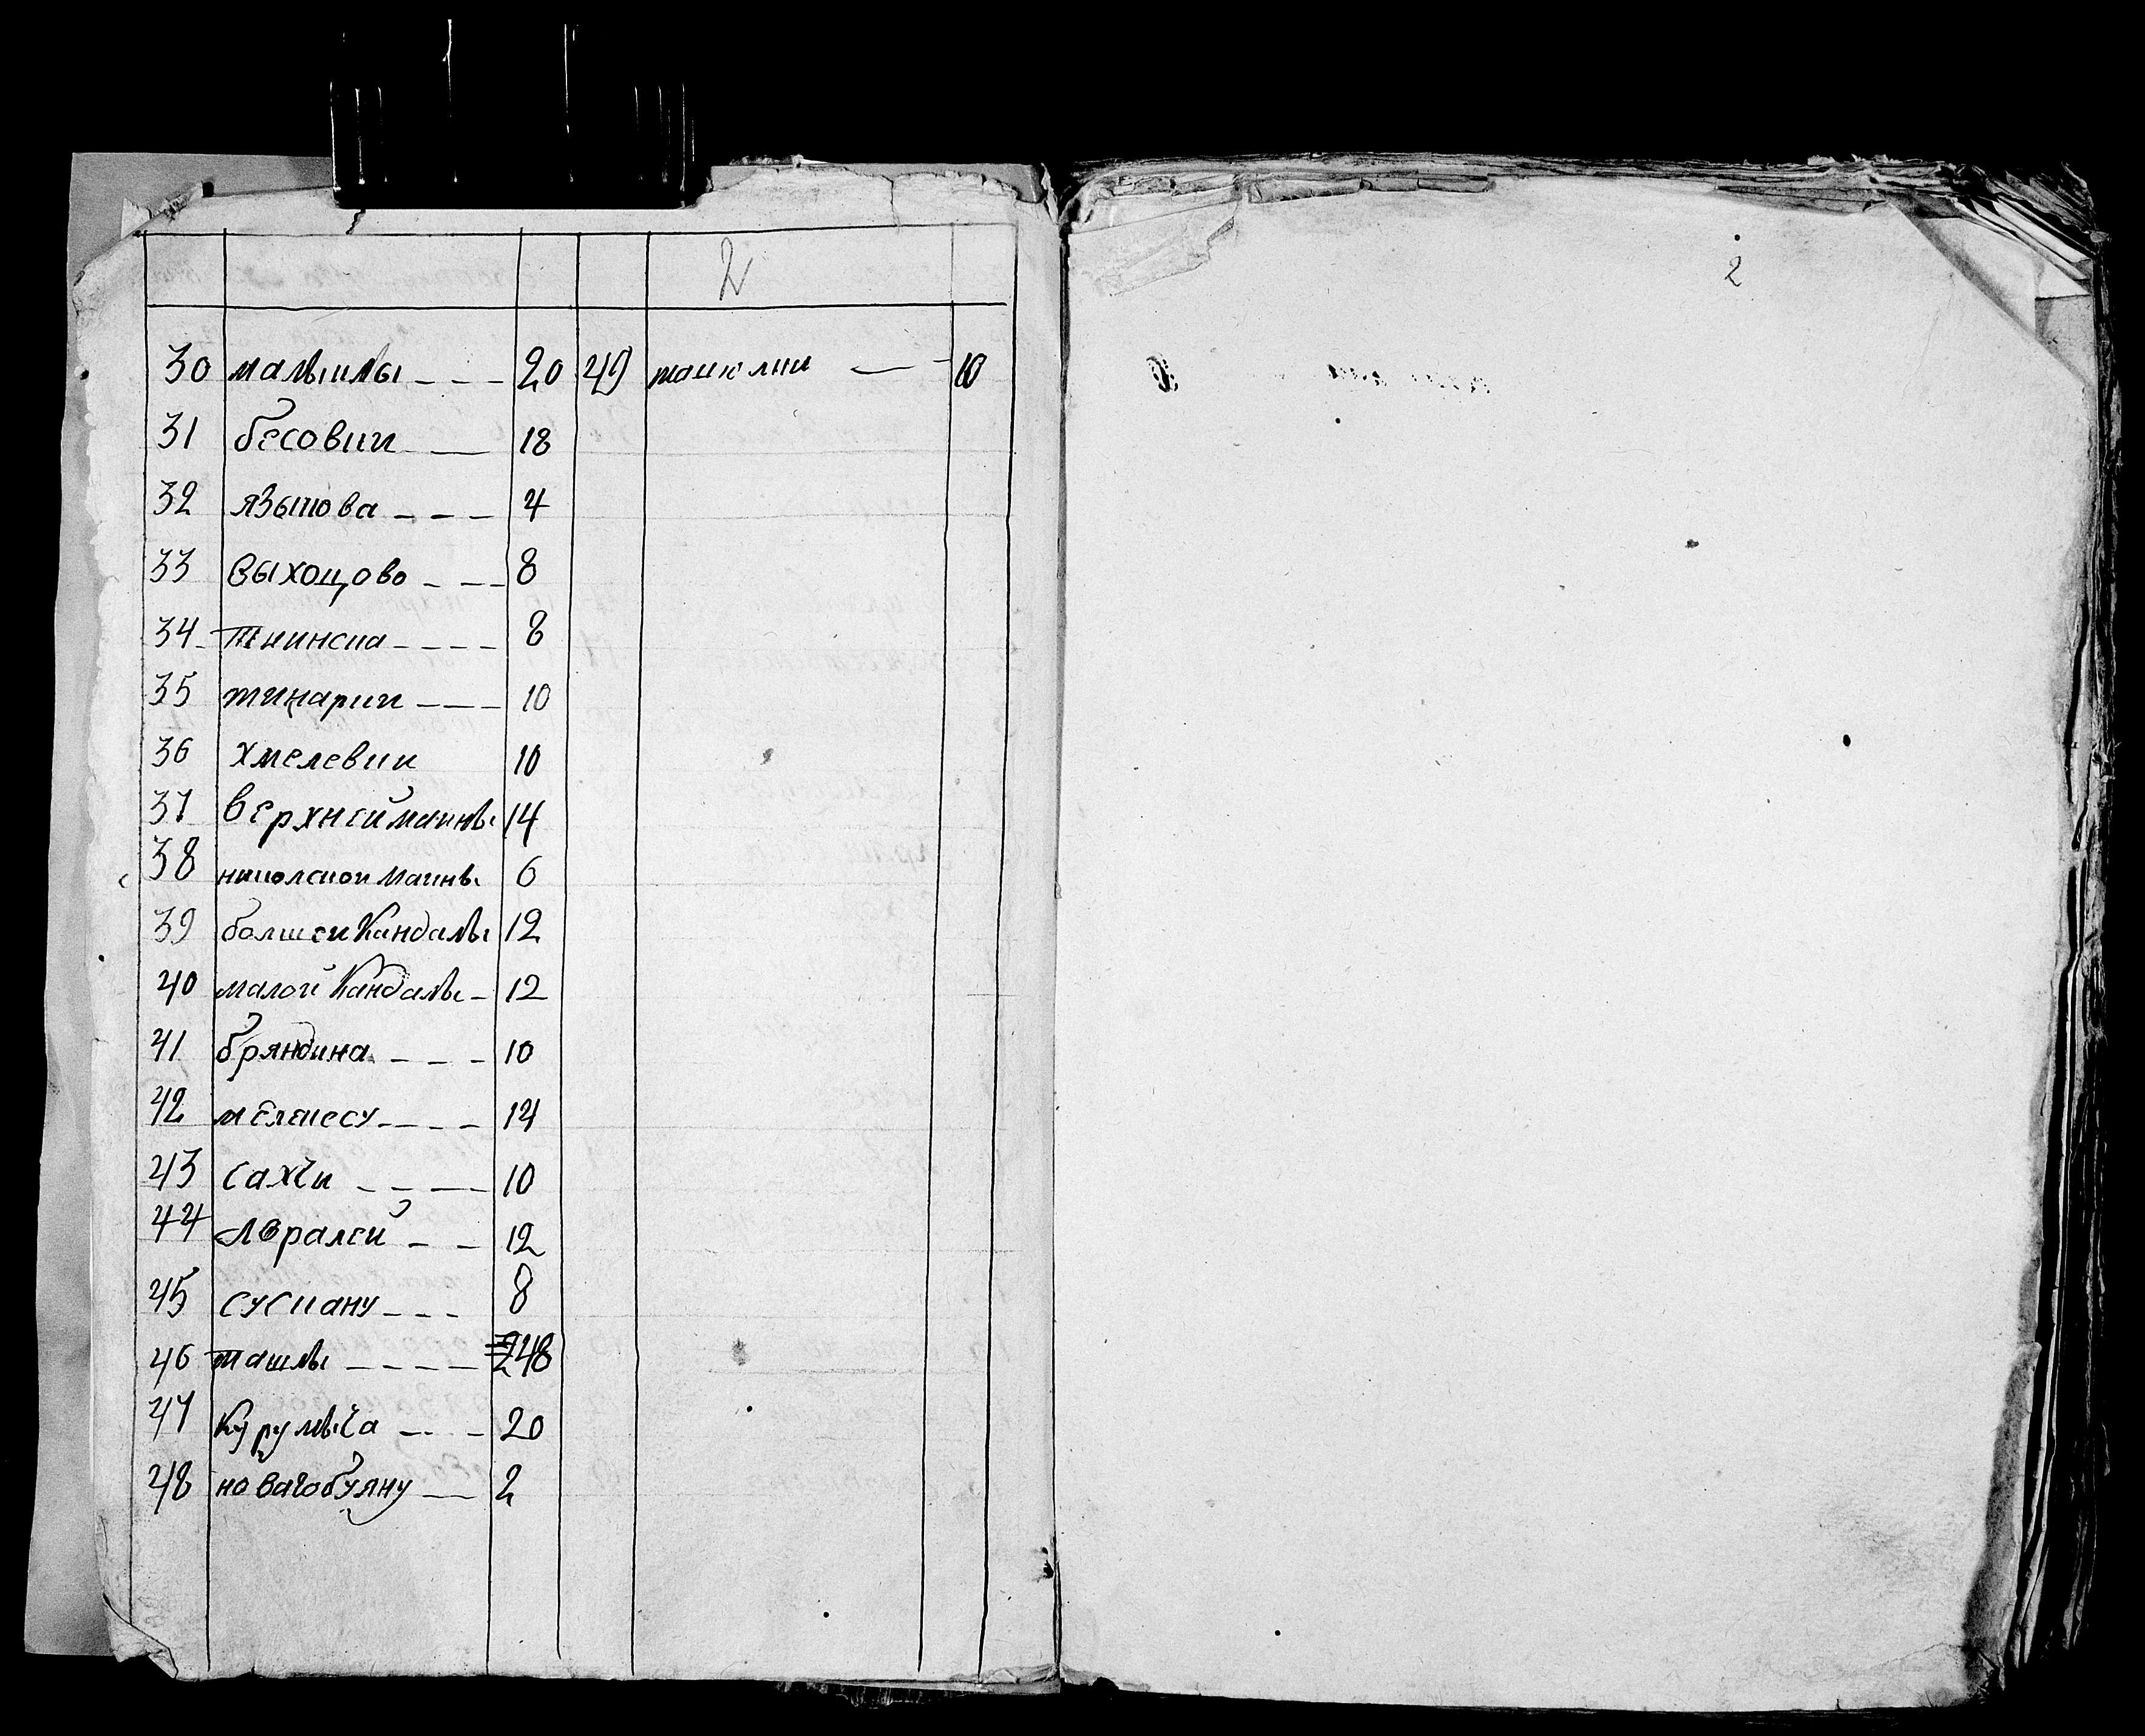 2
30 малыклы --- 20 49 ташкалки — 10
31 бесовки — 18
32 языкова --- 4
33 выхоцово --- 8
34 тиинска ---- 8
35 тинарки --- 10
36 хмелевки 10
37 верхней маины 14
38 николской маины 6
39 болшеи Кандалы 12
40 малой Кандалы - 12
41 бряндина --- 10
42 мелекесу ---- 14
43 сахчи ---- 10
44 Авралей -- 12
45 сускану --- 8
46 ташлы ---- 248
47 Курумыча --- 20
48 новагобуяну — 2
2